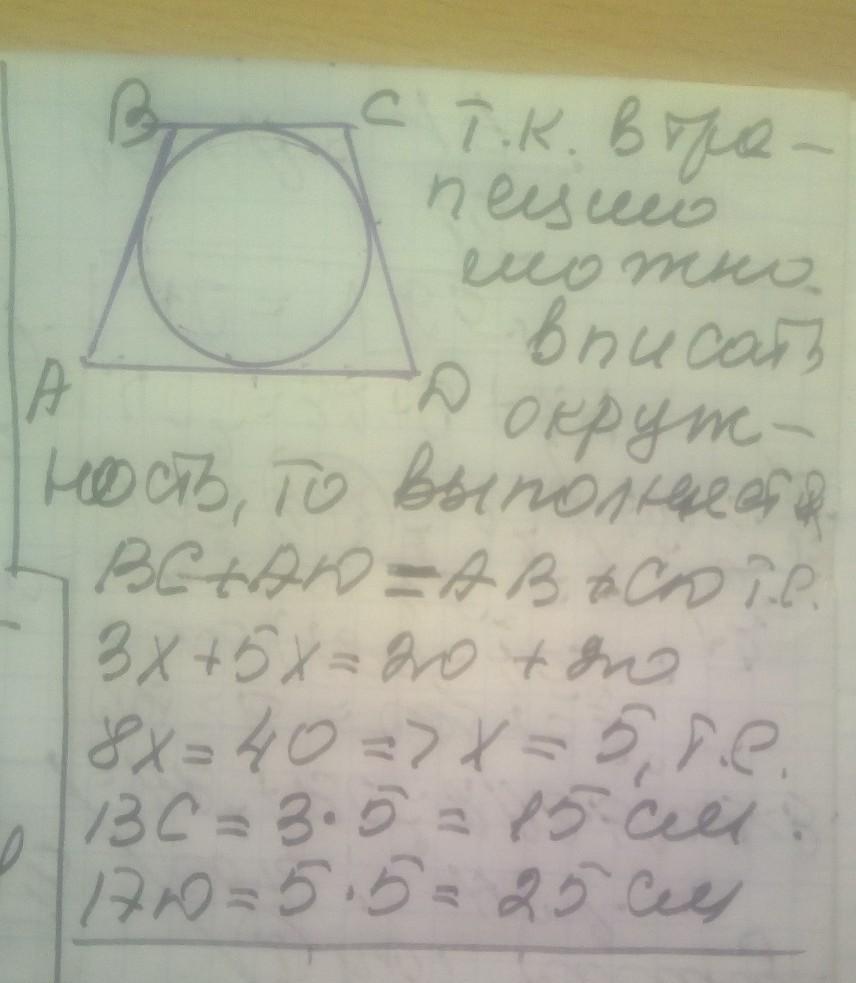 B C Т.К. в тра-
пецию
можно
вписать
A D окруж-
ность, то выполняется
BC + AD = AB + CD т.е.
3x + 5x = 20 + 20
8x = 40 => x = 5, т.е.
BC = 3·5 = 15 см.
AD = 5·5 = 25 см